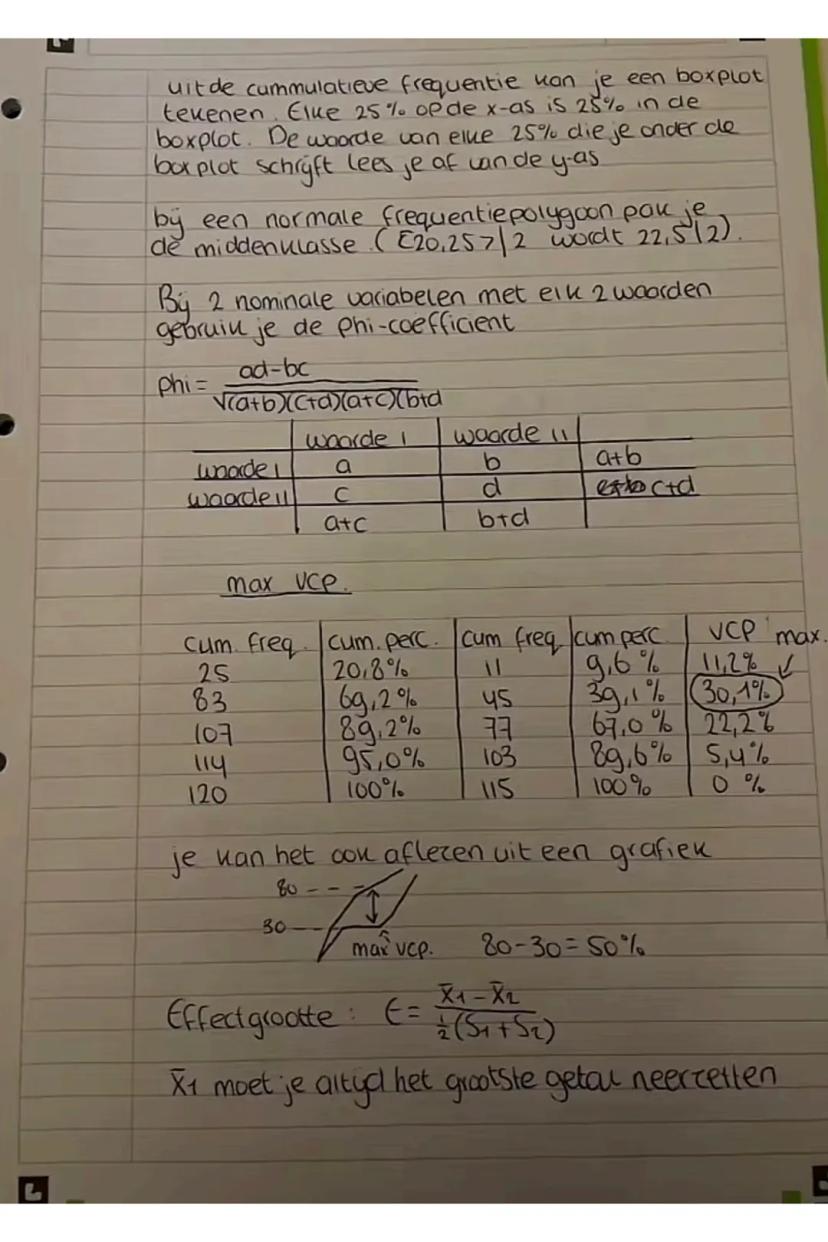 uit de cummulatieve frequentie kan je een boxplot
tekenen. Elke 25% op de x-as is 25% in de
boxplot. De waarde van elke 25% die je onder de
boxplot schrijft lees je af van de y-as
bij een normale frequentiepolygoon pak je
de middenklasse ([20,25>|2 wordt 22,5|2).
Bij 2 nominale variabelen met elk 2 waarden
gebruik je de phi-coëfficient
phi = ad-bc
√(a+b)(c+d)(a+c)(b+d
waarde I waarde II
waarde I a b a+b
waarde II c d c+d
a+c b+d
max vcp.
cum. freq. cum. perc. cum freq cum perc VCP max.
25 20,8% 11 9,6% 11,2% ↙
83 69,2% 45 39,1% 30,1%
107 89,2% 77 67,0% 22,2%
114 95,0% 103 89,6% 5,4%
120 100% 115 100% 0 %
je kan het ook aflezen uit een grafiek
80 - - -
30 -
max vcp. 80-30=50%
Effectgrootte: E= x̄1 - x̄2
½(S1+S2)
x̄1 moet je altijd het grootste getal neerzetten